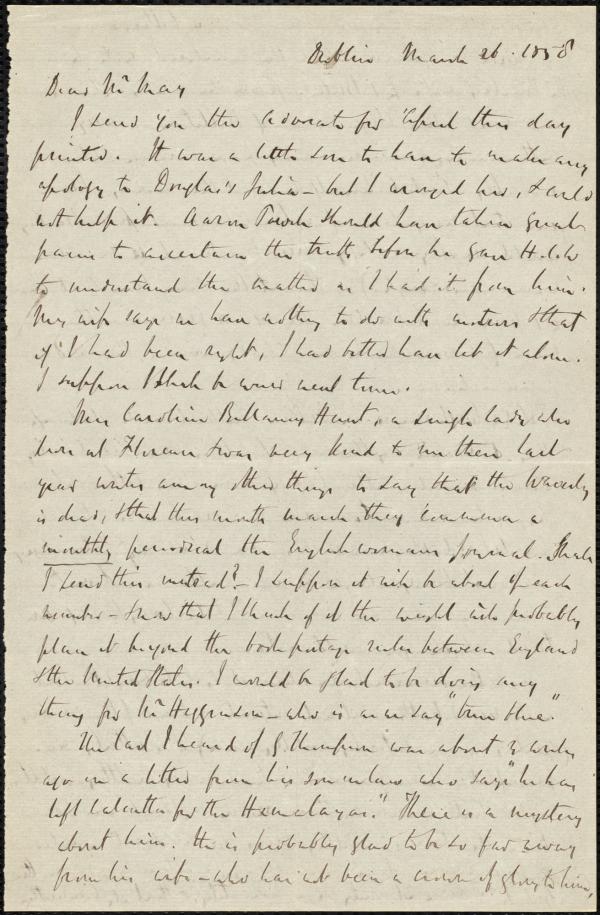 Dublin March 26. 1858
Dear Mr May
I send you the Advocate for April this day
printed. It was a little sore to have to make any
apology to Douglass's Julia - but I wronged her, & could
not help it. Aaron Powell should have taken great
pains to ascertain the truth before he gave H. Webb
to understand the matter as I had it from him.
My wife says we have nothing to do with motives & that
if I had been right, I had better have let it alone.
I suppose I shall be wiser next time.
Miss Caroline Bellamy Hunt, a single lady who
lives at Florence & was very kind to me there last
year writes among other things to say that the Waverly
is dead, & that this month March they commence a
monthly periodical the Englishwomans Journal. Shall
I send this instead? - I suppose it will be about of each
number - & now that I think of it the weight will probably
place it beyond the book postage rules between England
& the United States. I would be glad to be doing any
thing for Mr Higginson - who is as we say "true blue."
The last I heard of G. Thompson was about 3 weeks
ago in a letter from his son in law who says "he has
left Calcutta for the Hemalayas." There is a mystery
about him. He is probably glad to be so far away
from his wife - who has not been a crown of glory to him,